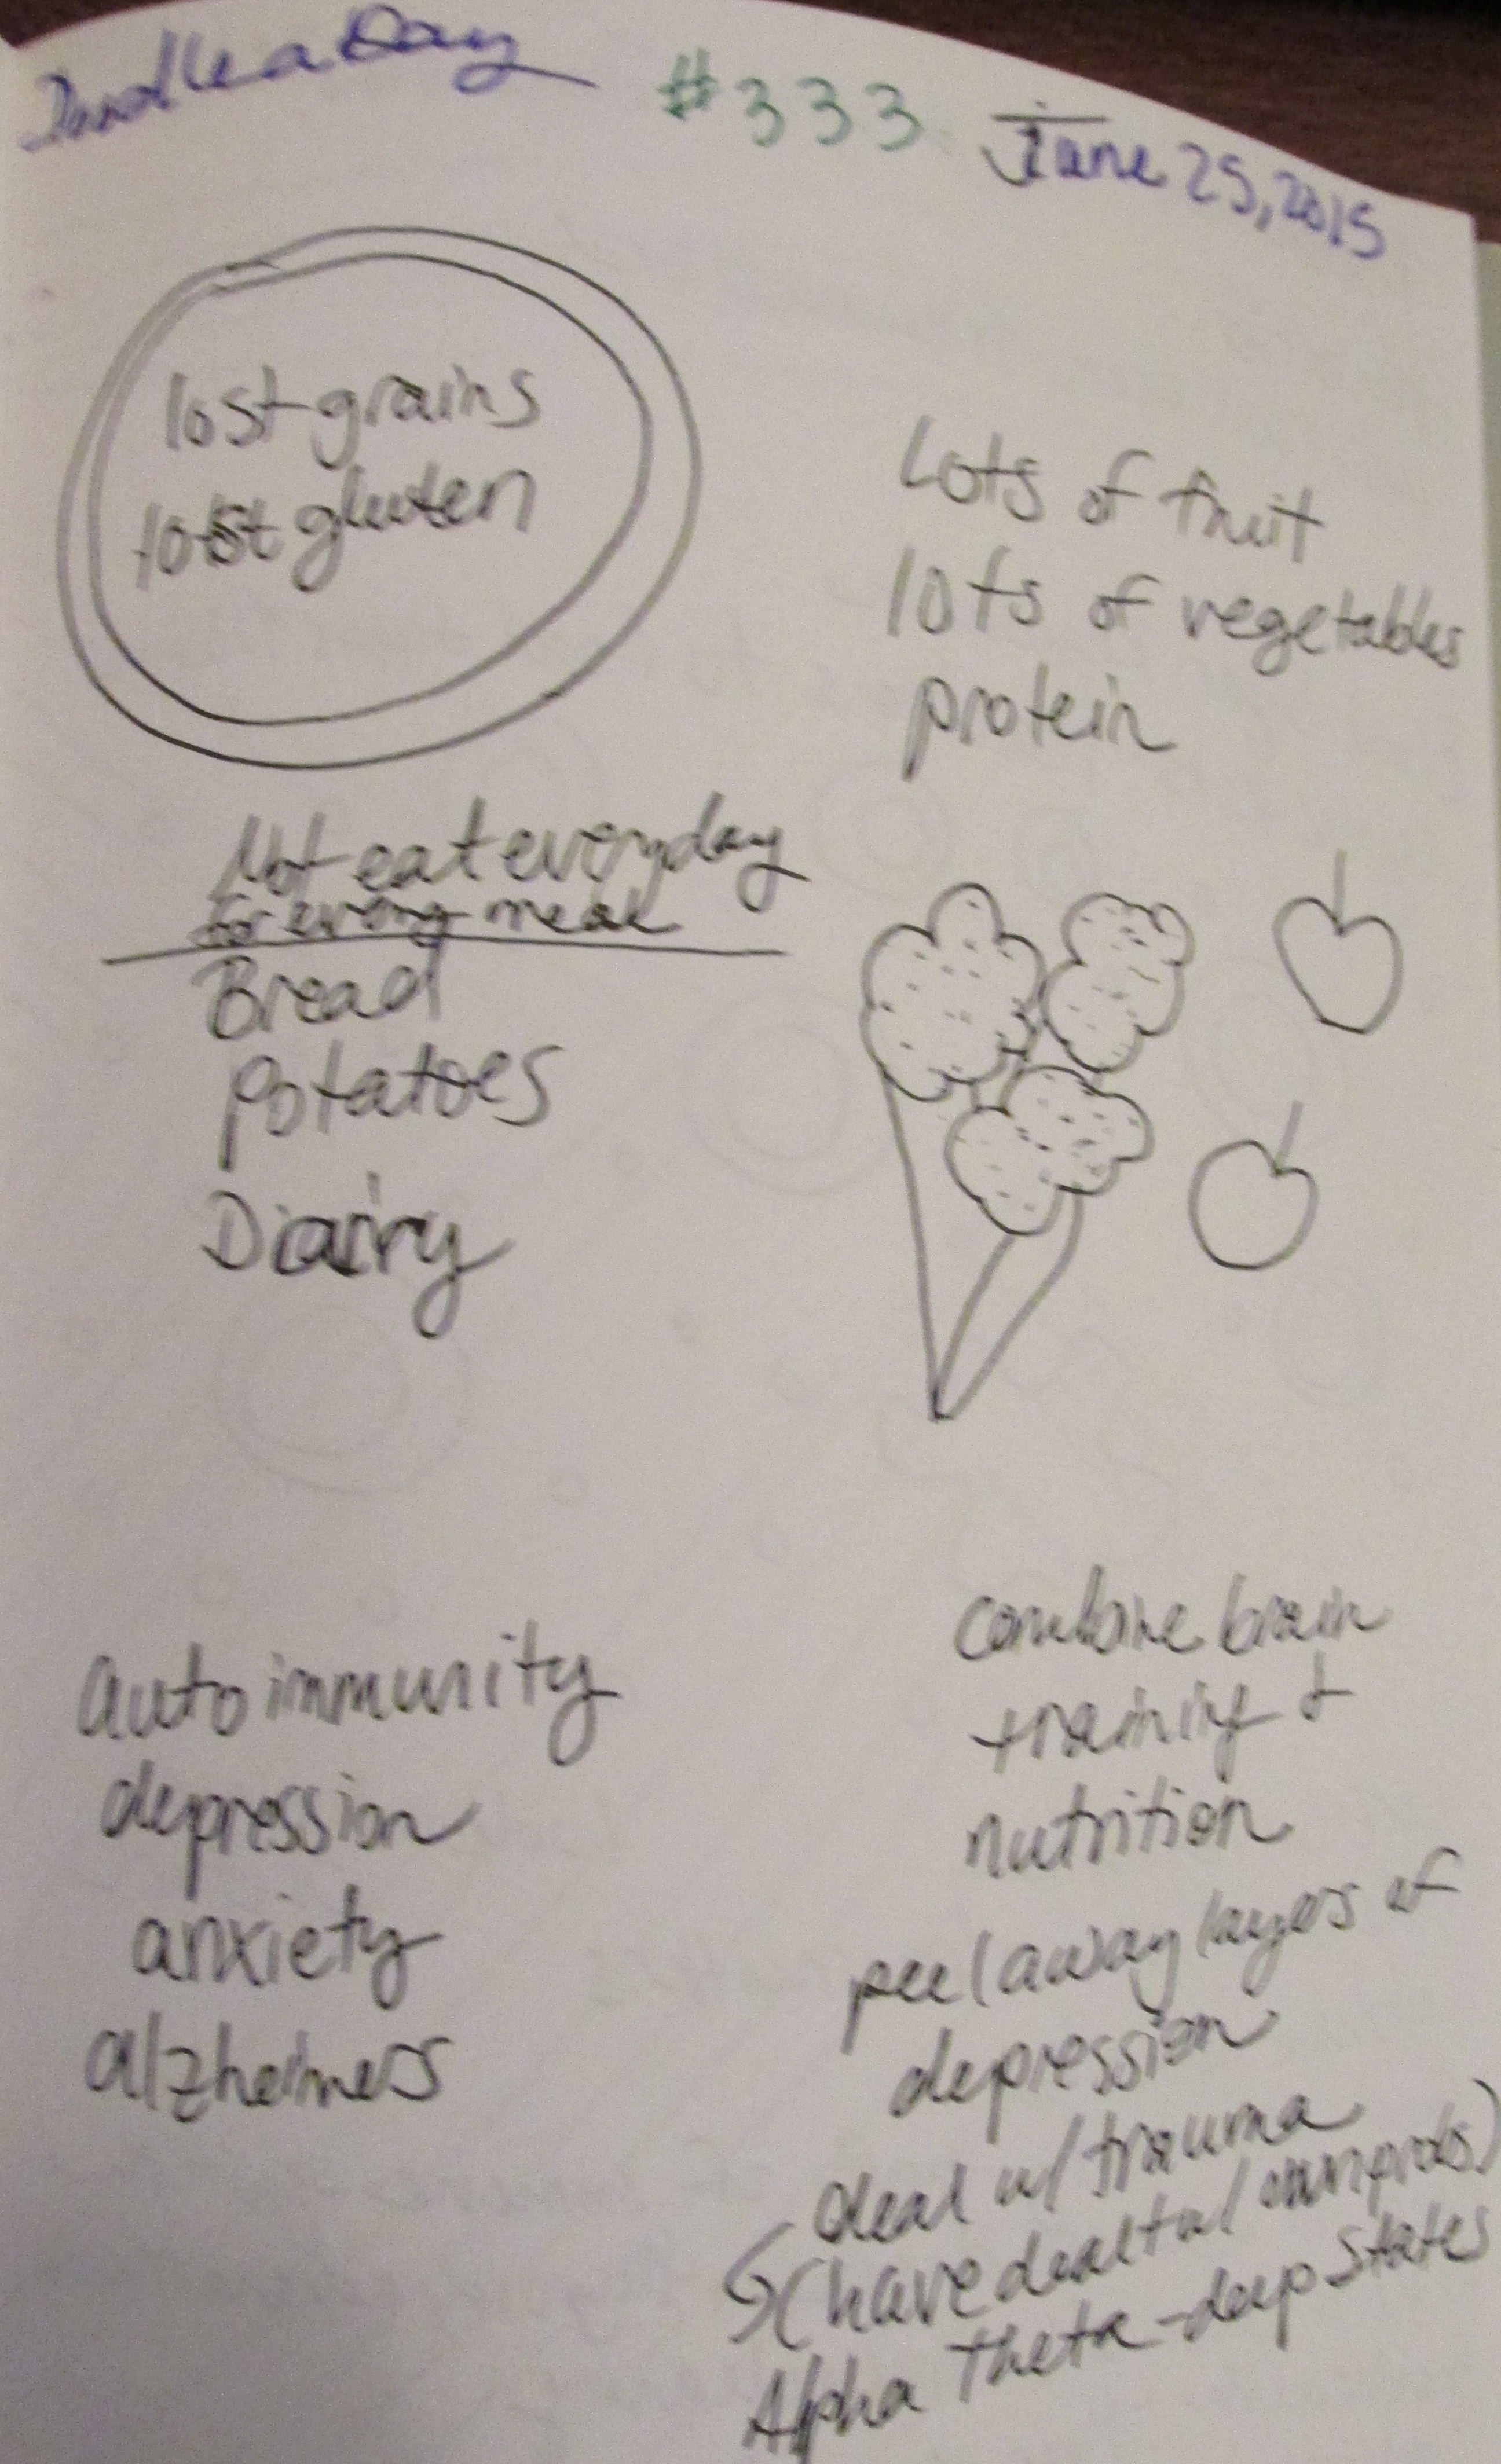 Doodle a Day #333 June 25, 2015
lost grains
lost gluten
Lots of fruit
lots of vegetables
protein
Not eat everyday
for every meal
Bread
Potatoes
Dairy
autoimmunity
depression
anxiety
alzheimers
combine brain
training &
nutrition
peel away layers of
depression
deal w/ trauma
(have dealt w/ own probs)
Alpha Theta - deep states